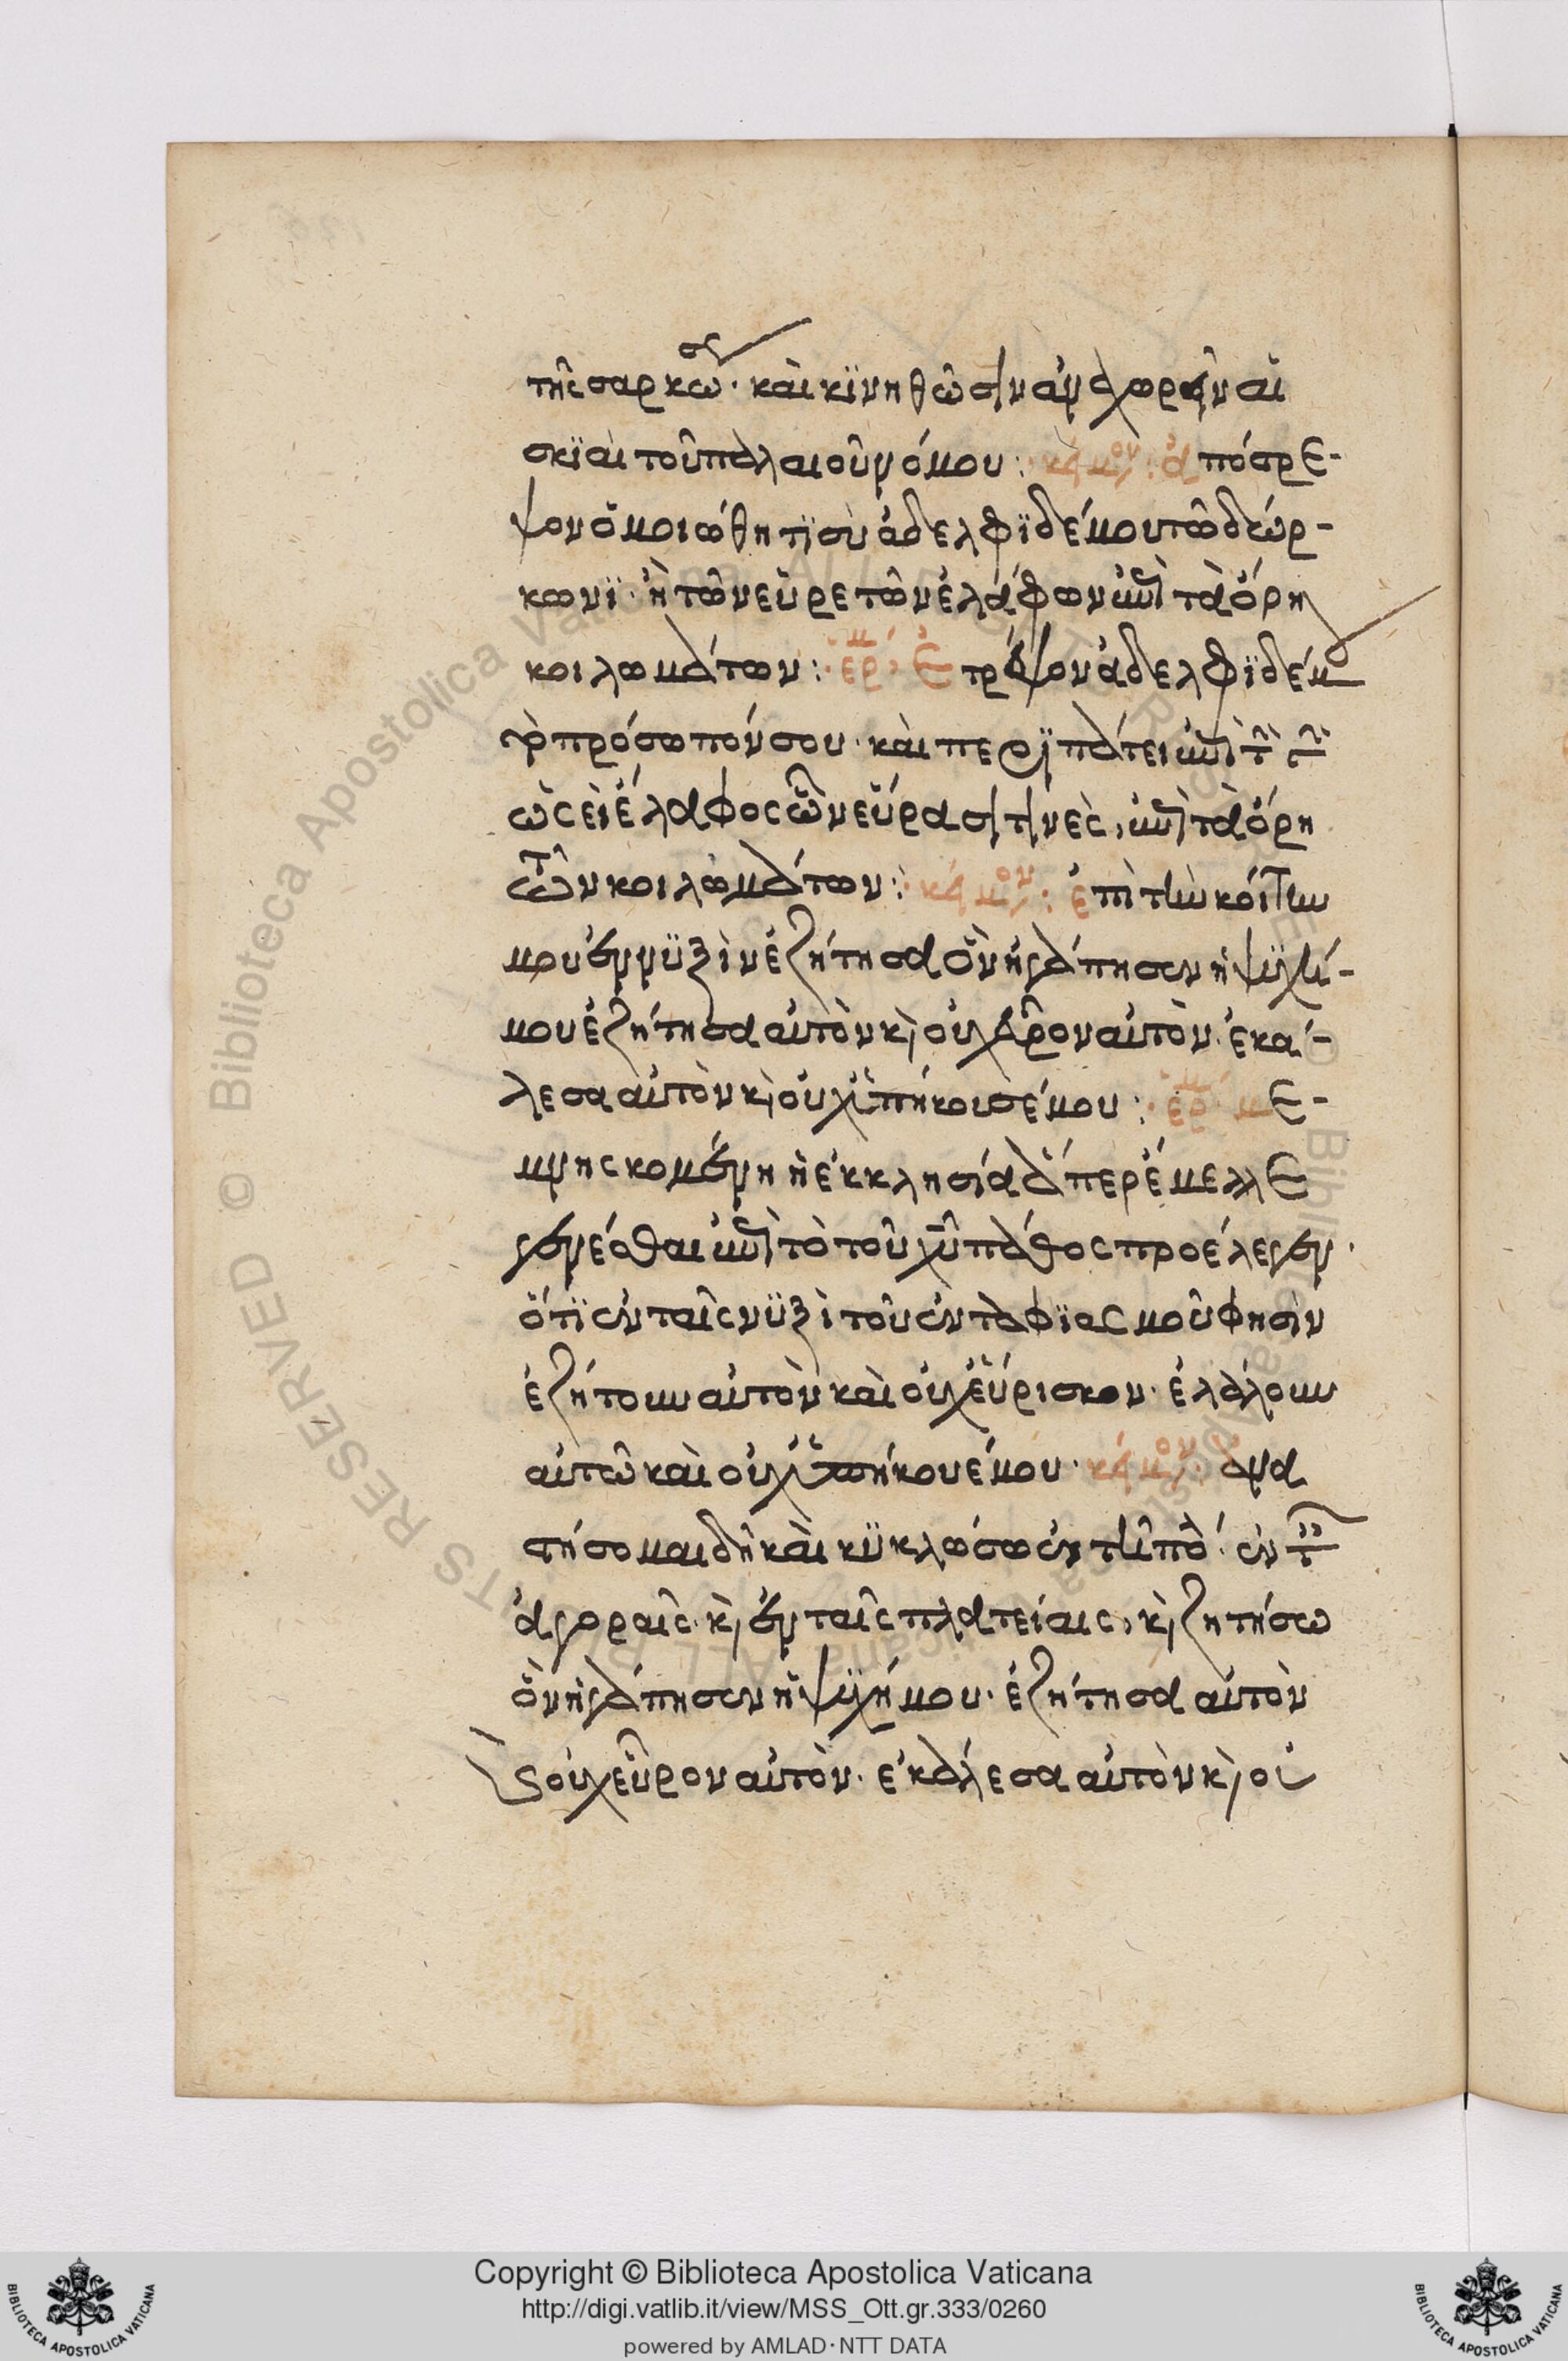 της σαρκώσ. καὶ κϊνηθῶσιν ἀναχωρεῖν αἱ
σκϊαὶ τοῦ παλαιοῦ νόμου: κείμον: ἀπόσρε-
ψον ὁμοιώθητϊ σὺ ἀδελφϊδέ μου τῶ δώρ-
κωνϊ. ἢ τῶ νευρε τῶν ἐλάφων ἐπὶ τὰ ὄρη
κοιλωμάτων: ἑρμ. ἐπίτρεψον ἀδελφϊδέ μ
τὸ πρόσωπόν σου. καὶ περϊπάτει ἐπὶ τ γ
ὡσεὶ ἔλαφος ὧ νευρασϊ τϊνες, ἐπὶ τὰ ὄρη
τῶν κοιλωμάτων: κείμον: ἐπὶ τὴν κοίτην
μου ἐν νϋξὶν ἐζήτησα ὃν ἠγάπησεν ἡ ψϋχή-
μου ἐζήτησα αὐτὸν κὶ οὐχ εὗρον αὐτόν. ἐκά-
λεσα αὐτὸν κὶ οὐχ ὑπήκουσέ μου: ἑρμ με-
μνησκομένη ἡ ἐκκλησία ἅπερ ἔμελλε
γενέσθαι ἐπὶ τὸ τοῦ χυ πάθος προέλεγεν.
ὅτϊ ἐν ταῖς νϋξὶ τοῦ ἐνταφϊασμοῦ φησὶν
ἐζήτουν αὐτὸν καὶ οὐχ εὕρισκον. ἐλάλουν
αὐτῶ καὶ οὐχ ὑπήκουέ μου. κείμον: ἀνα
στήσομαι δὴ καὶ κϋκλώσω ἐν τῆ πό. ἐν τ
ἀγοραῖς. κὶ ἐν ταῖς πλατείαις, κὶ ζητήσω
ὃν ἠγάπησεν ἡ ψϋχή μου. ἐζήτησα αὐτὸν
κὶ οὐχ εὗρον αὐτόν. ἐκάλεσα αὐτὸν κὶ οὐ
Copyright © Biblioteca Apostolica Vaticana
http://digi.vatlib.it/view/MSS_Ott.gr.333/0260
powered by AMLAD·NTT DATA